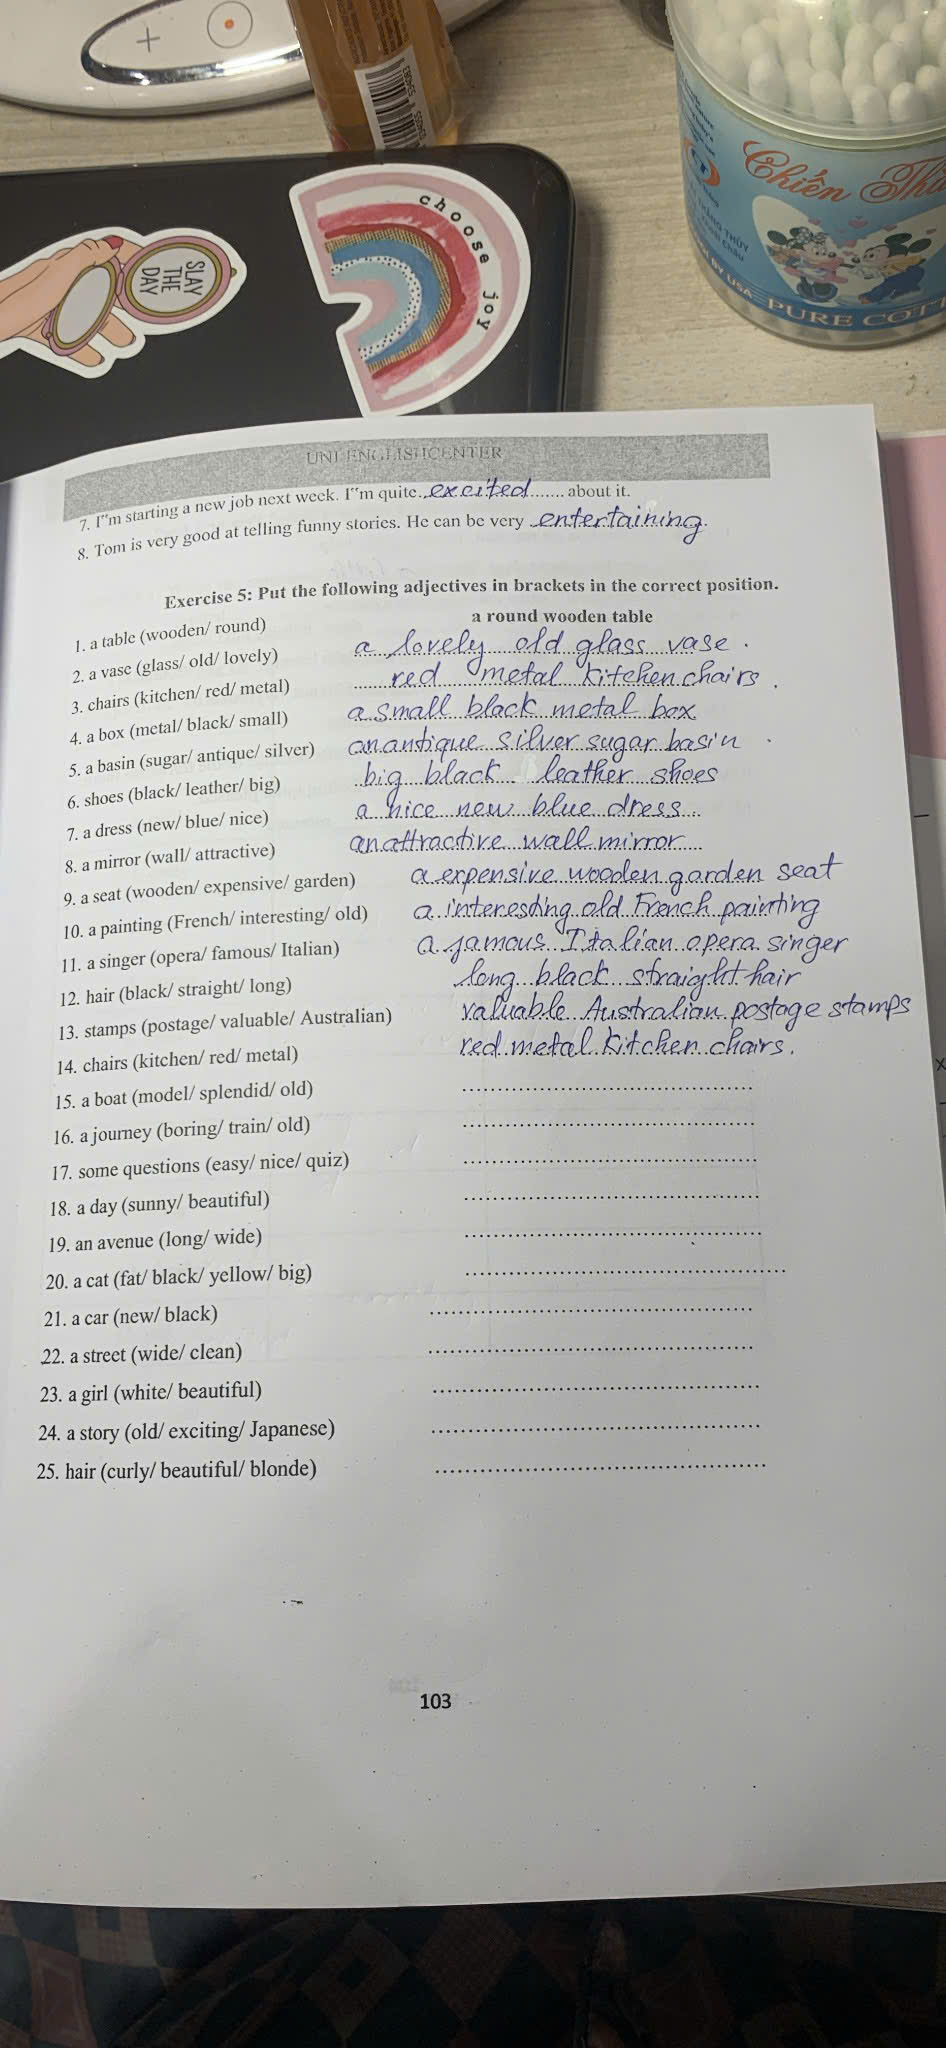 SLAY
THE
DAY
choose joy
Chiến
PURE
UNI ENGLISHCENTER
7. I"m starting a new job next week. I"m quite..excited....... about it.
8. Tom is very good at telling funny stories. He can be very ..entertaining.
Exercise 5: Put the following adjectives in brackets in the correct position.
1. a table (wooden/ round) a round wooden table
2. a vase (glass/ old/ lovely) a lovely old glass vase.
3. chairs (kitchen/ red/ metal) red metal kitchen chairs.
4. a box (metal/ black/ small) a small black metal box
5. a basin (sugar/ antique/ silver) an antique silver sugar basin.
6. shoes (black/ leather/ big) big black leather shoes
7. a dress (new/ blue/ nice) a nice new blue dress
8. a mirror (wall/ attractive) an attractive wall mirror
9. a seat (wooden/ expensive/ garden) a expensive wooden garden seat
10. a painting (French/ interesting/ old) a interesding old French painting
11. a singer (opera/ famous/ Italian) a famous Italian opera singer
12. hair (black/ straight/ long) long black straight hair
13. stamps (postage/ valuable/ Australian) valuable Australian postage stamps
14. chairs (kitchen/ red/ metal) red metal kitchen chairs.
15. a boat (model/ splendid/ old)
16. a journey (boring/ train/ old)
17. some questions (easy/ nice/ quiz)
18. a day (sunny/ beautiful)
19. an avenue (long/ wide)
20. a cat (fat/ black/ yellow/ big)
21. a car (new/ black)
22. a street (wide/ clean)
23. a girl (white/ beautiful)
24. a story (old/ exciting/ Japanese)
25. hair (curly/ beautiful/ blonde)
103